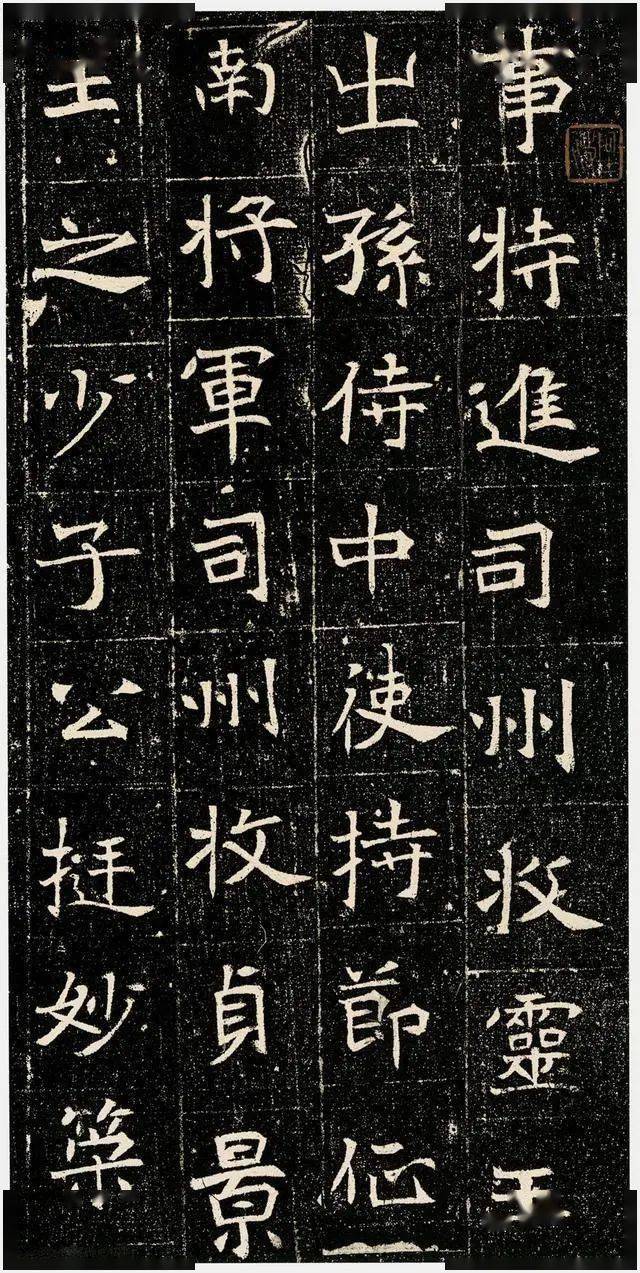 事特進司州牧靈王
出孫侍中使持節征
南將軍司州牧貞景
王之少子公挺妙築